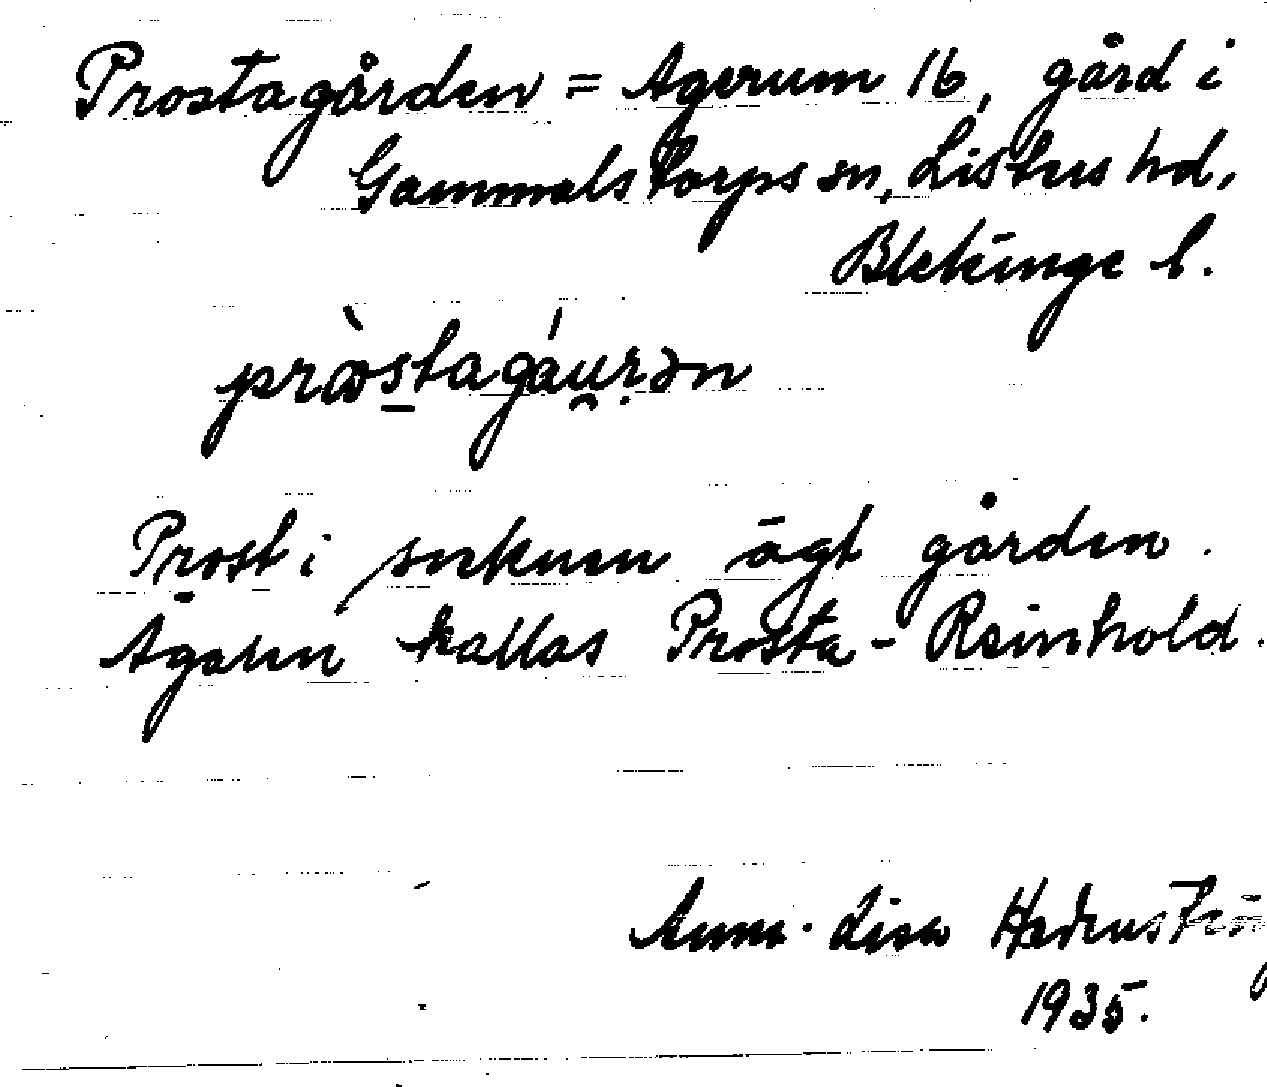 Prostagården = Agerum 16, gård i
Gammalstorps sn, Listers hd,
Blekinge l.
pràstagáurən
Prost i socknen ägt gården.
Ägaren kallas Prosta-Reinhold.
Anna-Lisa
1935.